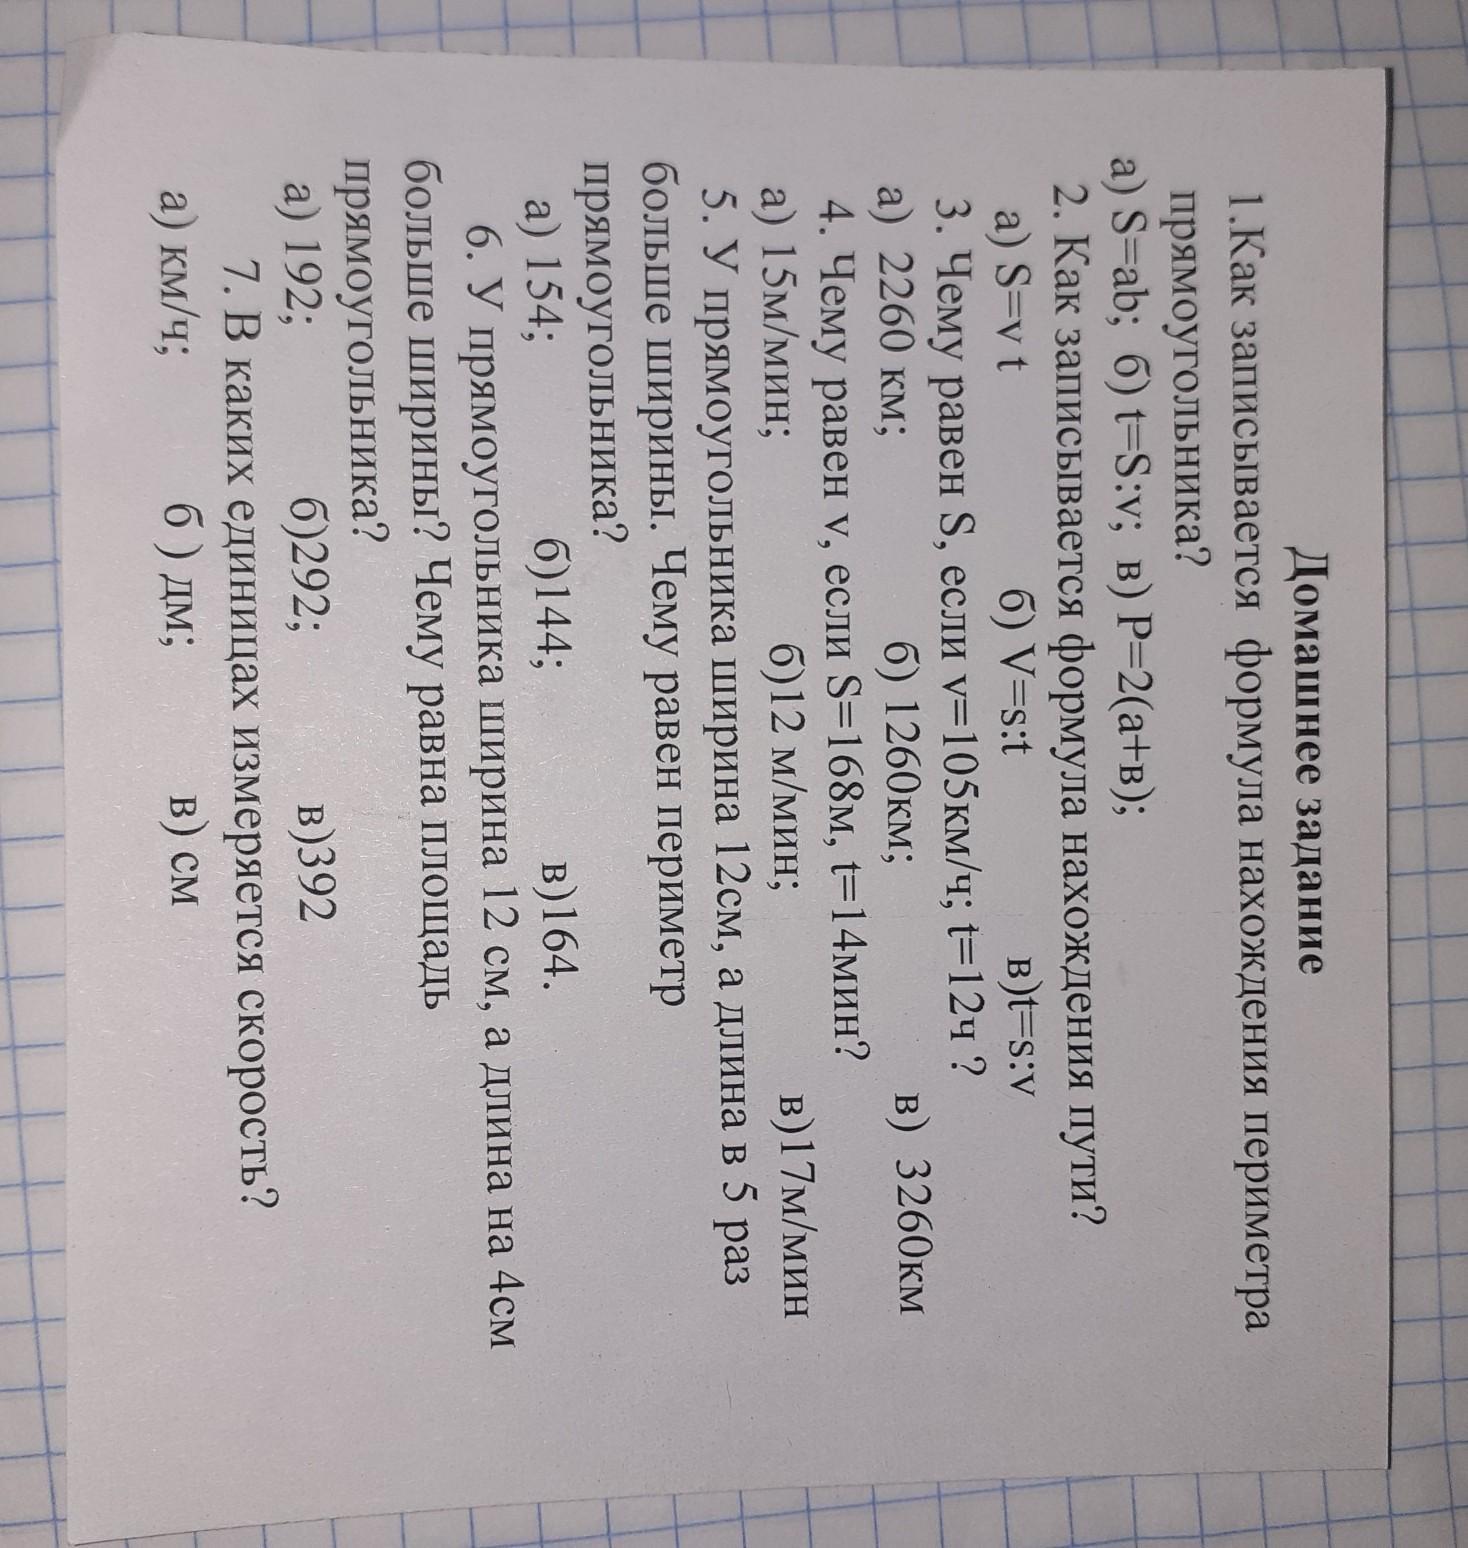 Домашнее задание
1.Как записывается формула нахождения периметра
прямоугольника?
а) S=ab; б) t=S:v; в) P=2(а+в);
2. Как записывается формула нахождения пути?
а) S=v t б) V=s:t в)t=s:v
3. Чему равен S, если v=105км/ч; t=12ч ?
а) 2260 км; б) 1260км; в) 3260км
4. Чему равен v, если S=168м, t=14мин?
а) 15м/мин; б)12 м/мин; в)17м/мин
5. У прямоугольника ширина 12см, а длина в 5 раз
больше ширины. Чему равен периметр
прямоугольника?
а) 154; б)144; в)164.
6. У прямоугольника ширина 12 см, а длина на 4см
больше ширины? Чему равна площадь
прямоугольника?
а) 192; б)292; в)392
7. В каких единицах измеряется скорость?
а) км/ч; б ) дм; в) см